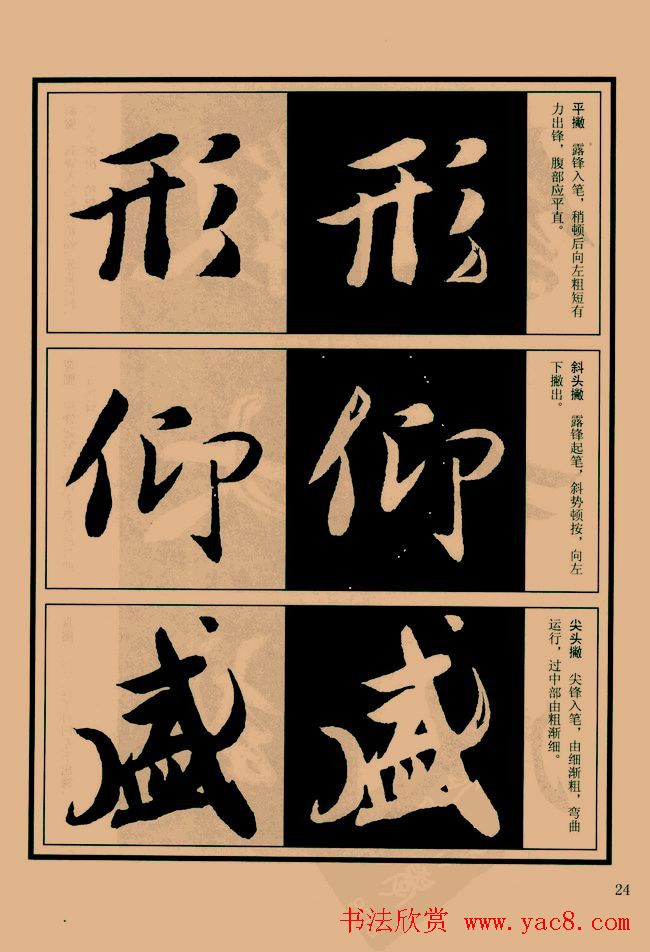 平撇　露锋入笔，稍顿后向左粗短有
力出锋，腹部应平直。
形 形
斜头撇　露锋起笔，斜势顿按，向左
下撇出。
仰 仰
尖头撇　尖锋入笔，由细渐粗，弯曲
运行，过中部由粗渐细。
盛 盛
24
书法欣赏 www.yac8.com